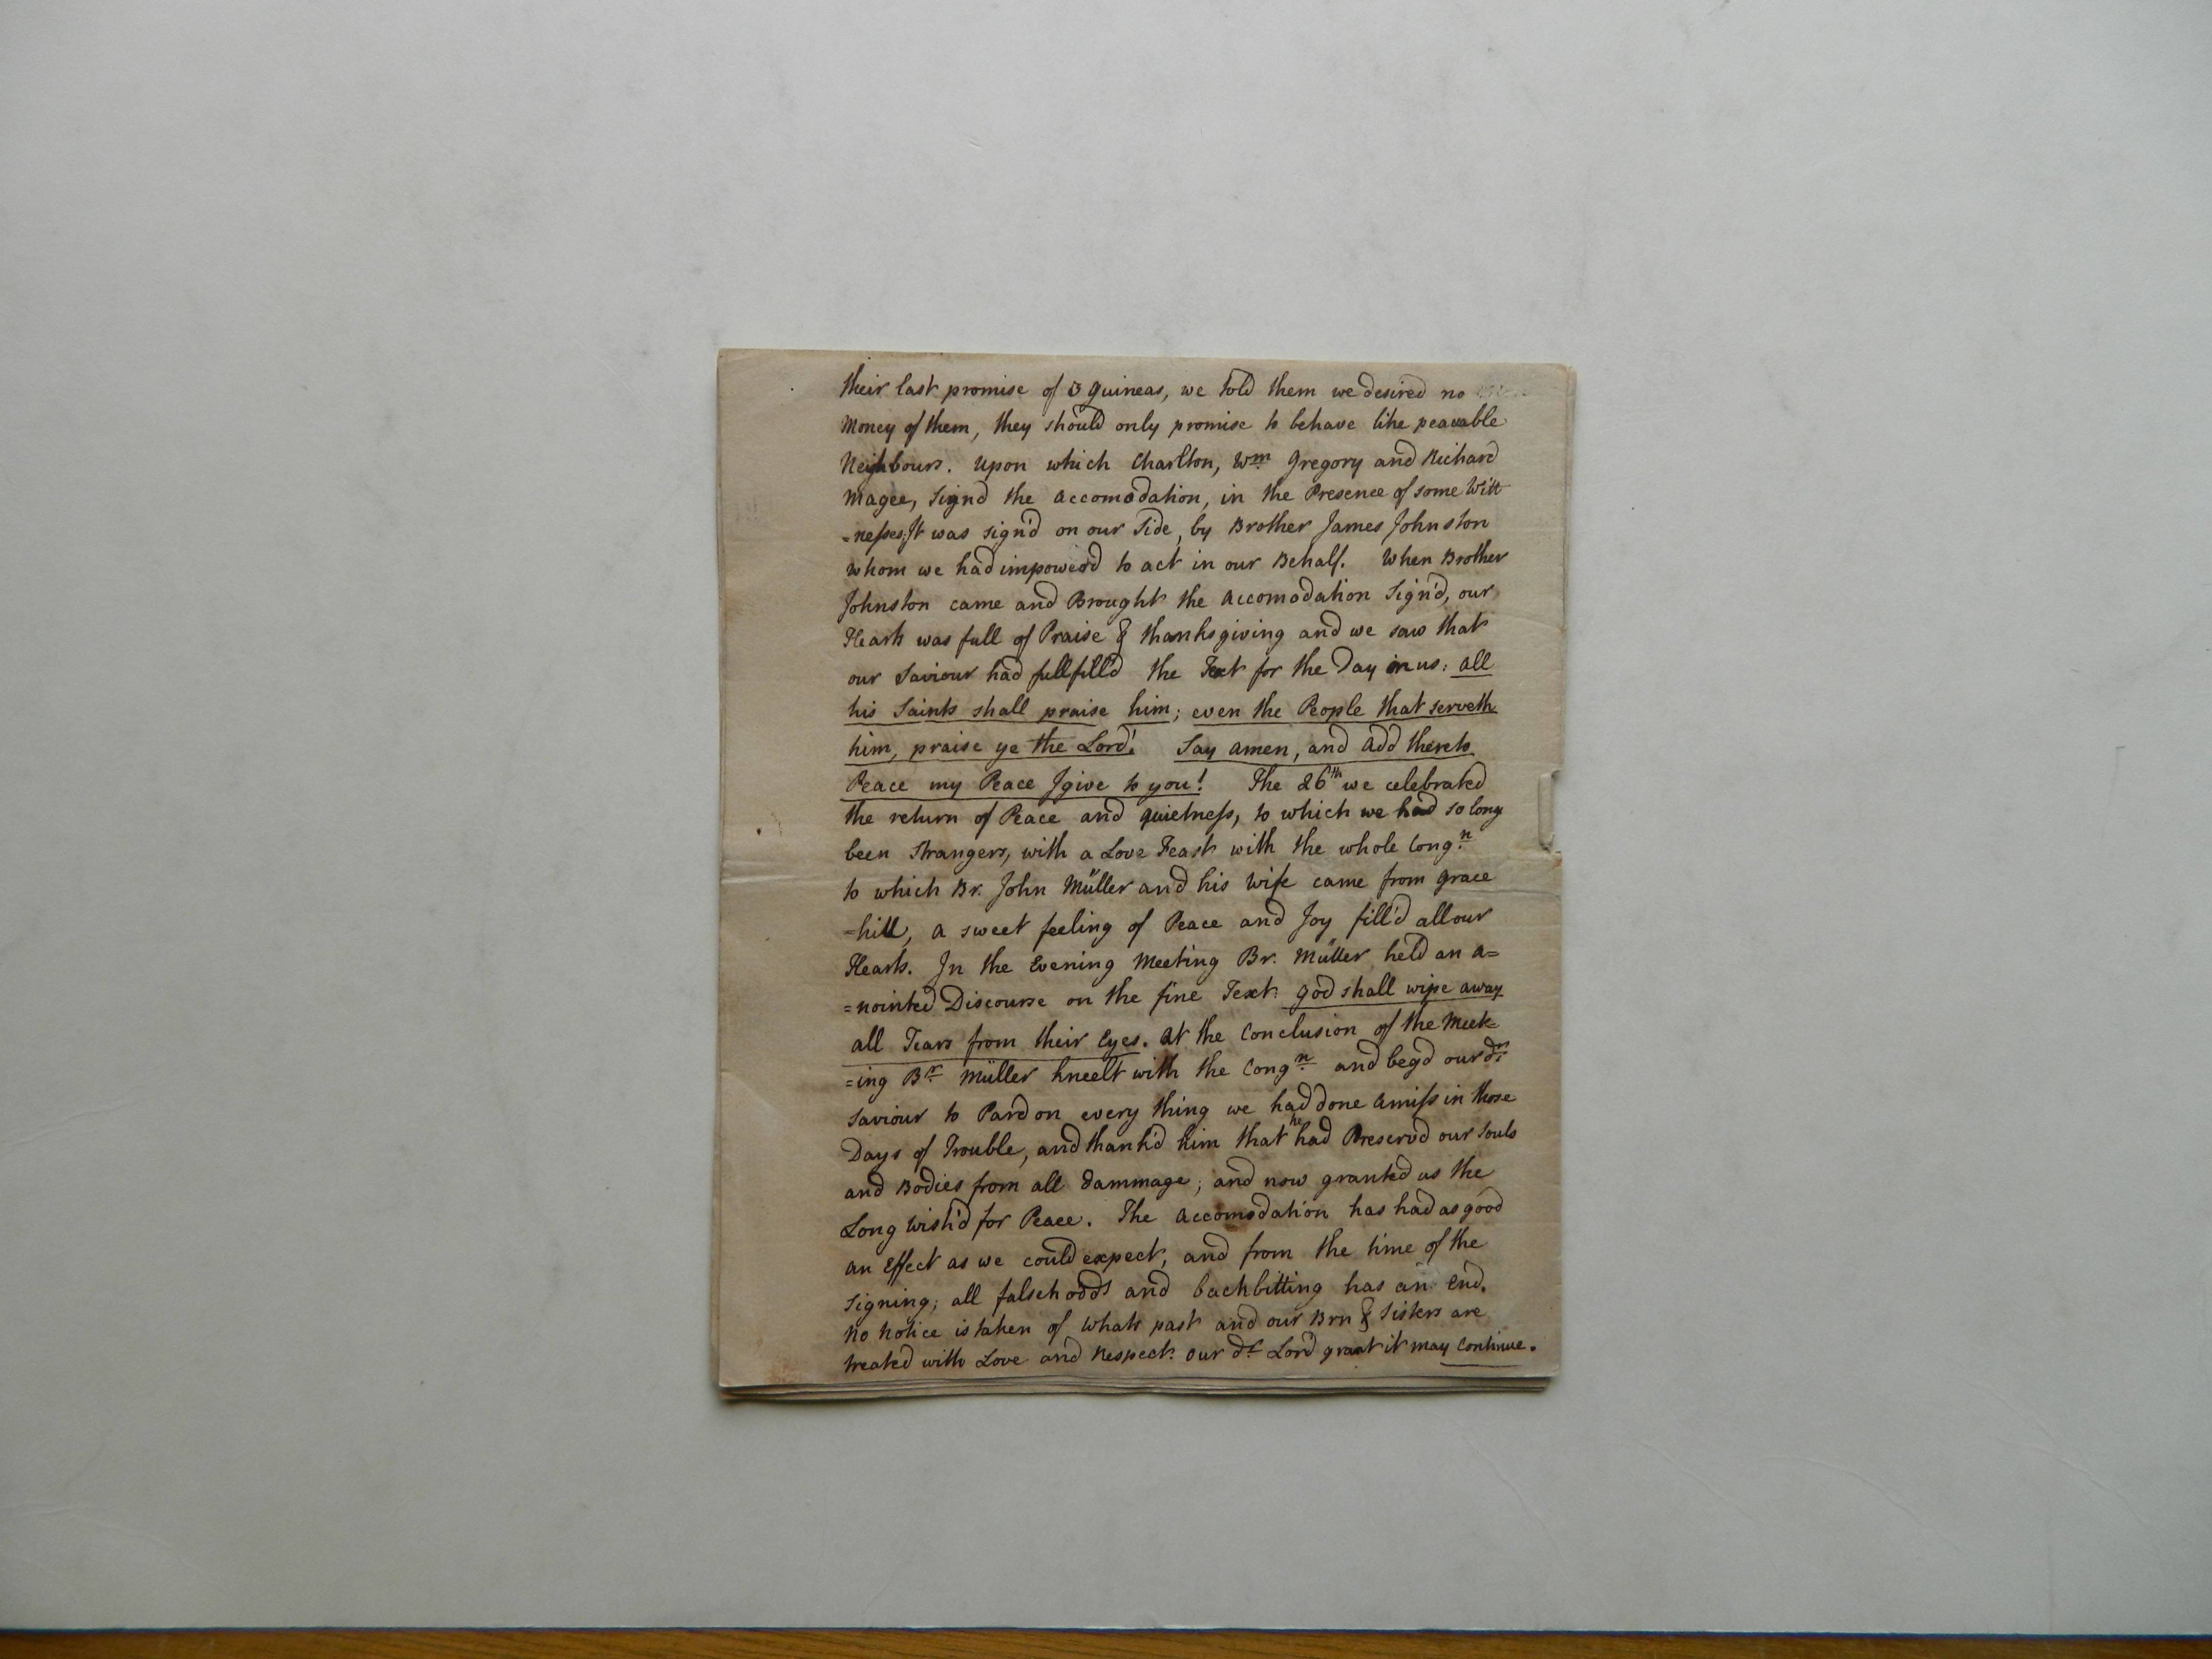 their last promise of 3 guineas, we told them we desired no
Money of them, they should only promise to behave like peacable
Neighbours. Upon which Charlton, Wm Gregory and Richard
Magee, Sign'd the Accomodation, in the Presence of some Witt
=nesses; It was sign'd on our Side, by Brother James Johnston
whom we had impower'd to act in our Behalf. When Brother
Johnston came and Brought the Accomodation Sign'd, our
Hearts was full of Praise & thanksgiving and we saw that
our Saviour had fullfill'd the Text for the Day in us: All
his Saints shall praise him; even the People that serveth
him, praise ye the Lord! Say Amen, and add thereto
Peace my Peace I give to you! The 26th we celebrated
the return of Peace and quietness, to which we had so long
been Strangers, with a Love Feast with the whole Congn
to which Br. John Müller and his Wife came from Grace
=hill, a sweet feeling of Peace and Joy fill'd all our
Hearts. In the Evening Meeting Br. Müller held an a=
=nointed Discourse on the fine Text: God shall wipe away
all Tears from their Eyes. At the Conclusion of the Meet=
=ing Br Müller kneelt with the Congn and beg'd our dr
Saviour to Pardon every thing we had done Amiss in those
Days of Trouble, and thank'd him that he had Preserv'd our Souls
and Bodies from all dammage; and now granted us the
Long wish'd for Peace. The Accomodation has had as good
an Effect as we could expect, and from the time of the
Signing; all falsehodds and backbitting has an end.
No Notice is taken of whats past and our Brn & Sisters are
treated with Love and Respect. Our dr Lord grant it may Continue.